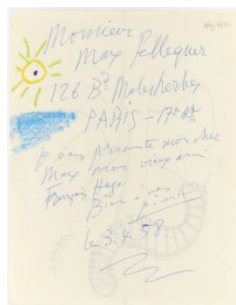 Monsieur
Max Pellequer
126 Bd Malesherbes
PARIS – 17e
je vous présente mon cher
Max mon vieux ami
Bien à vous
le 3.4.58.